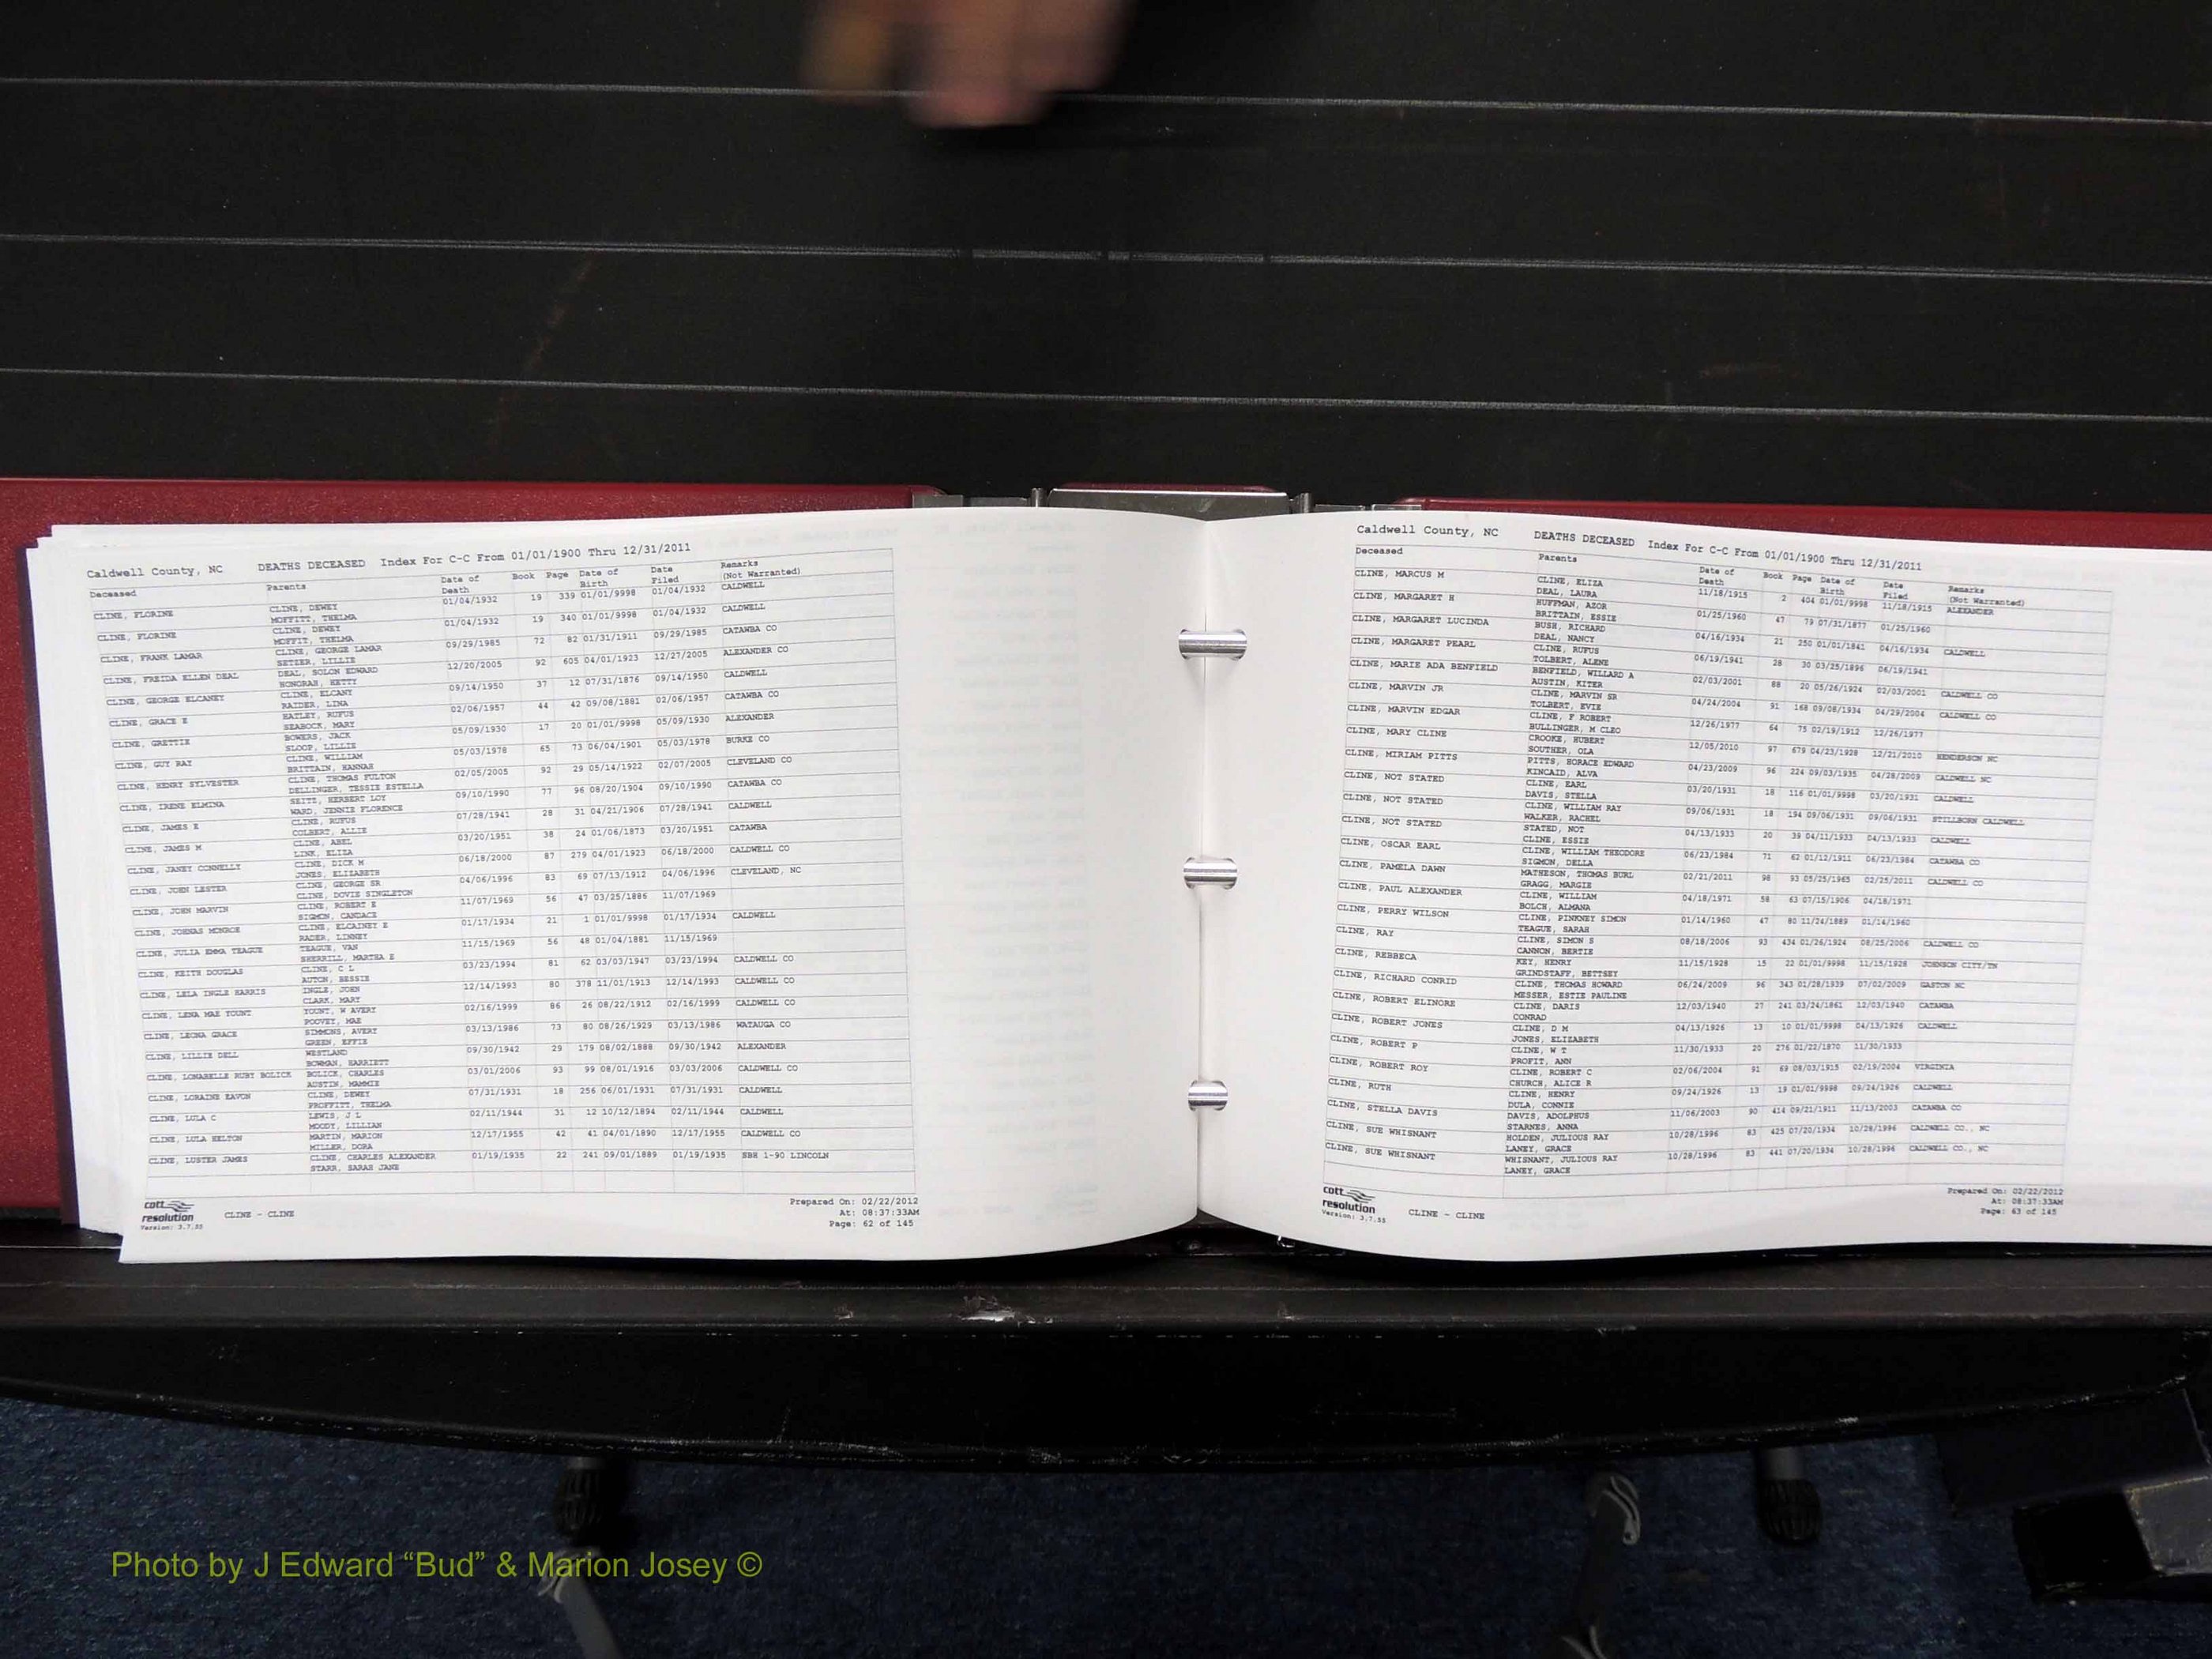 Caldwell County, NC DEATHS DECEASED Index For C-C From 01/01/1900 Thru 12/31/2011
Deceased Parents Date of Death Book Page Date of Birth Date Filed Remarks (Not Warranted)
CLINE, FLORINE CLINE, DEWEY 01/04/1932 19 339 01/01/9998 01/04/1932 CALDWELL
MOFFITT, THELMA
CLINE, FLORINE CLINE, DEWEY 01/04/1932 19 340 01/01/9998 01/04/1932 CALDWELL
MOFFIT, THELMA
CLINE, FRANK LAMAR CLINE, GEORGE LAMAR 09/29/1985 72 82 01/31/1911 09/29/1985 CATAWBA CO
SETZER, LILLIE
CLINE, FREIDA ELLEN DEAL DEAL, SOLON EDWARD 12/20/2005 92 605 04/01/1923 12/27/2005 ALEXANDER CO
HONORAH, HETTY
CLINE, GEORGE ELCANEY CLINE, ELCANY 09/14/1950 37 12 07/31/1876 09/14/1950 CALDWELL
RAIDER, LINA
CLINE, GRACE E HATLEY, RUFUS 02/06/1957 44 42 09/08/1881 02/06/1957 CATAWBA CO
SEABOCK, MARY
CLINE, GRETTIE BOWERS, JACK 05/09/1930 17 20 01/01/9998 05/09/1930 ALEXANDER
SLOOP, LILLIE
CLINE, GUY RAY CLINE, WILLIAM 05/03/1978 65 73 06/04/1901 05/03/1978 BURKE CO
BRITTAIN, HANNAH
CLINE, HENRY SYLVESTER CLINE, THOMAS FULTON 02/05/2005 92 29 05/14/1922 02/07/2005 CLEVELAND CO
DELLINGER, TESSIE ESTELLA
CLINE, IRENE ELMINA SEITZ, HERBERT LOY 09/10/1990 77 96 08/20/1904 09/10/1990 CATAWBA CO
WARD, JENNIE FLORENCE
CLINE, JAMES E CLINE, RUFUS 07/28/1941 28 31 04/21/1906 07/28/1941 CALDWELL
COLBERT, ALLIE
CLINE, JAMES M CLINE, ABEL 03/20/1951 38 24 01/06/1873 03/20/1951 CATAWBA
LINK, ELIZA
CLINE, JANEY CONNELLY CLINE, DICK M 06/18/2000 87 279 04/01/1923 06/18/2000 CALDWELL CO
JONES, ELIZABETH
CLINE, JOHN LESTER CLINE, GEORGE SR 04/06/1996 83 69 07/13/1912 04/06/1996 CLEVELAND, NC
CLINE, DOVIE SINGLETON
CLINE, JOHN MARVIN CLINE, ROBERT E 11/07/1969 56 47 03/25/1886 11/07/1969
SIGMON, CANDACE
CLINE, JOHNAS MONROE CLINE, ELCAINEY E 01/17/1934 21 1 01/01/9998 01/17/1934 CALDWELL
RADER, LINNEY
CLINE, JULIA EMMA TEAGUE TEAGUE, VAN 11/15/1969 56 48 01/04/1881 11/15/1969
SHERRILL, MARTHA E
CLINE, KEITH DOUGLAS CLINE, C L 03/23/1994 81 62 03/03/1947 03/23/1994 CALDWELL CO
AUTON, BESSIE
CLINE, LELA INGLE HARRIS INGLE, JOHN 12/14/1993 80 378 11/01/1913 12/14/1993 CALDWELL CO
CLARK, MARY
CLINE, LENA MAE YOUNT YOUNT, W AVERY 02/16/1999 86 26 08/22/1912 02/16/1999 CALDWELL CO
POOVEY, MAE
CLINE, LEONA GRACE SIMMONS, AVERY 03/13/1986 73 80 08/26/1929 03/13/1986 WATAUGA CO
GREEN, EFFIE
CLINE, LILLIE DELL WESTLAND 09/30/1942 29 179 08/02/1888 09/30/1942 ALEXANDER
BOWMAN, HARRIETT
CLINE, LONABELLE RUBY BOLICK BOLICK, CHARLES 03/01/2006 93 99 08/01/1916 03/03/2006 CALDWELL CO
AUSTIN, MAMMIE
CLINE, LORAINE EAVON CLINE, DEWEY 07/31/1931 18 256 06/01/1931 07/31/1931 CALDWELL
PROFFITT, THELMA
CLINE, LULA C LEWIS, J L 02/11/1944 31 12 10/12/1894 02/11/1944 CALDWELL
MOODY, LILLIAN
CLINE, LULA HELTON MARTIN, MARION 12/17/1955 42 41 04/01/1890 12/17/1955 CALDWELL CO
MILLER, DORA
CLINE, LUSTER JAMES CLINE, CHARLES ALEXANDER 01/19/1935 22 241 09/01/1889 01/19/1935 SBH 1-90 LINCOLN
STARR, SARAH JANE
cott
resolution
Version: 3.7.55
CLINE - CLINE
Prepared On: 02/22/2012
At: 08:37:33AM
Page: 62 of 145
Caldwell County, NC DEATHS DECEASED Index For C-C From 01/01/1900 Thru 12/31/2011
Deceased Parents Date of Death Book Page Date of Birth Date Filed Remarks (Not Warranted)
CLINE, MARCUS M CLINE, ELIZA 11/18/1915 2 404 01/01/9998 11/18/1915 ALEXANDER
DEAL, LAURA
CLINE, MARGARET H HUFFMAN, AZOR 01/25/1960 47 79 07/31/1877 01/25/1960
BRITTAIN, ESSIE
CLINE, MARGARET LUCINDA BUSH, RICHARD 04/16/1934 21 250 01/01/1841 04/16/1934 CALDWELL
DEAL, NANCY
CLINE, MARGARET PEARL CLINE, RUFUS 06/19/1941 28 30 03/25/1896 06/19/1941
TOLBERT, ALENE
CLINE, MARIE ADA BENFIELD BENFIELD, WILLARD A 02/03/2001 88 20 05/26/1924 02/03/2001 CALDWELL CO
AUSTIN, KITER
CLINE, MARVIN JR CLINE, MARVIN SR 04/24/2004 91 168 09/08/1934 04/29/2004 CALDWELL CO
TOLBERT, EVIE
CLINE, MARVIN EDGAR CLINE, F ROBERT 12/26/1977 64 75 02/19/1912 12/26/1977
BULLINGER, M CLEO
CLINE, MARY CLINE CROOKE, HUBERT 12/05/2010 97 679 04/23/1928 12/21/2010 HENDERSON NC
SOUTHER, OLA
CLINE, MIRIAM PITTS PITTS, HORACE EDWARD 04/23/2009 96 224 09/03/1935 04/28/2009 CALDWELL NC
KINCAID, ALVA
CLINE, NOT STATED CLINE, EARL 03/20/1931 18 116 01/01/9998 03/20/1931 CALDWELL
DAVIS, STELLA
CLINE, NOT STATED CLINE, WILLIAM RAY 09/06/1931 18 194 09/06/1931 09/06/1931 STILLBORN CALDWELL
WALKER, RACHEL
CLINE, NOT STATED STATED, NOT 04/13/1933 20 39 04/11/1933 04/13/1933 CALDWELL
CLINE, ESSIE
CLINE, OSCAR EARL CLINE, WILLIAM THEODORE 06/23/1984 71 62 01/12/1911 06/23/1984 CATAWBA CO
SIGMON, DELLA
CLINE, PAMELA DAWN MATHESON, THOMAS BURL 02/21/2011 98 93 05/25/1965 02/25/2011 CALDWELL CO
GRAGG, MARGIE
CLINE, PAUL ALEXANDER CLINE, WILLIAM 04/18/1971 58 63 07/15/1906 04/18/1971
BOLCH, ALMANA
CLINE, PERRY WILSON CLINE, PINKNEY SIMON 01/14/1960 47 80 11/24/1889 01/14/1960
TEAGUE, SARAH
CLINE, RAY CLINE, SIMON S 08/18/2006 93 434 01/26/1924 08/25/2006 CALDWELL CO
CANNON, BERTIE
CLINE, REBBECA KEY, HENRY 11/15/1928 15 22 01/01/9998 11/15/1928 JOHNSON CITY/TN
GRINDSTAFF, BETTSEY
CLINE, RICHARD CONRID CLINE, THOMAS HOWARD 06/24/2009 96 343 01/28/1939 07/02/2009 GASTON NC
MESSER, ESTIE PAULINE
CLINE, ROBERT ELINORE CLINE, DARIS 12/03/1940 27 241 03/24/1861 12/03/1940 CATAWBA
CONRAD
CLINE, ROBERT JONES CLINE, D M 04/13/1926 13 10 01/01/9998 04/13/1926 CALDWELL
JONES, ELIZABETH
CLINE, ROBERT P CLINE, W T 11/30/1933 20 276 01/22/1870 11/30/1933
PROFIT, ANN
CLINE, ROBERT ROY CLINE, ROBERT C 02/06/2004 91 69 08/03/1915 02/19/2004 VIRGINIA
CHURCH, ALICE R
CLINE, RUTH CLINE, HENRY 09/24/1926 13 19 01/01/9998 09/24/1926 CALDWELL
DULA, CONNIE
CLINE, STELLA DAVIS DAVIS, ADOLPHUS 11/06/2003 90 414 09/21/1911 11/13/2003 CATAWBA CO
STARNES, ANNA
CLINE, SUE WHISNANT HOLDEN, JULIOUS RAY 10/28/1996 83 425 07/20/1934 10/28/1996 CALDWELL CO., NC
LANEY, GRACE
CLINE, SUE WHISNANT WHISNANT, JULIOUS RAY 10/28/1996 83 441 07/20/1934 10/28/1996 CALDWELL CO., NC
LANEY, GRACE
cott
resolution
Version: 3.7.55
CLINE - CLINE
Prepared On: 02/22/2012
At: 08:37:33AM
Page: 63 of 145
Photo by J Edward “Bud” & Marion Josey ©